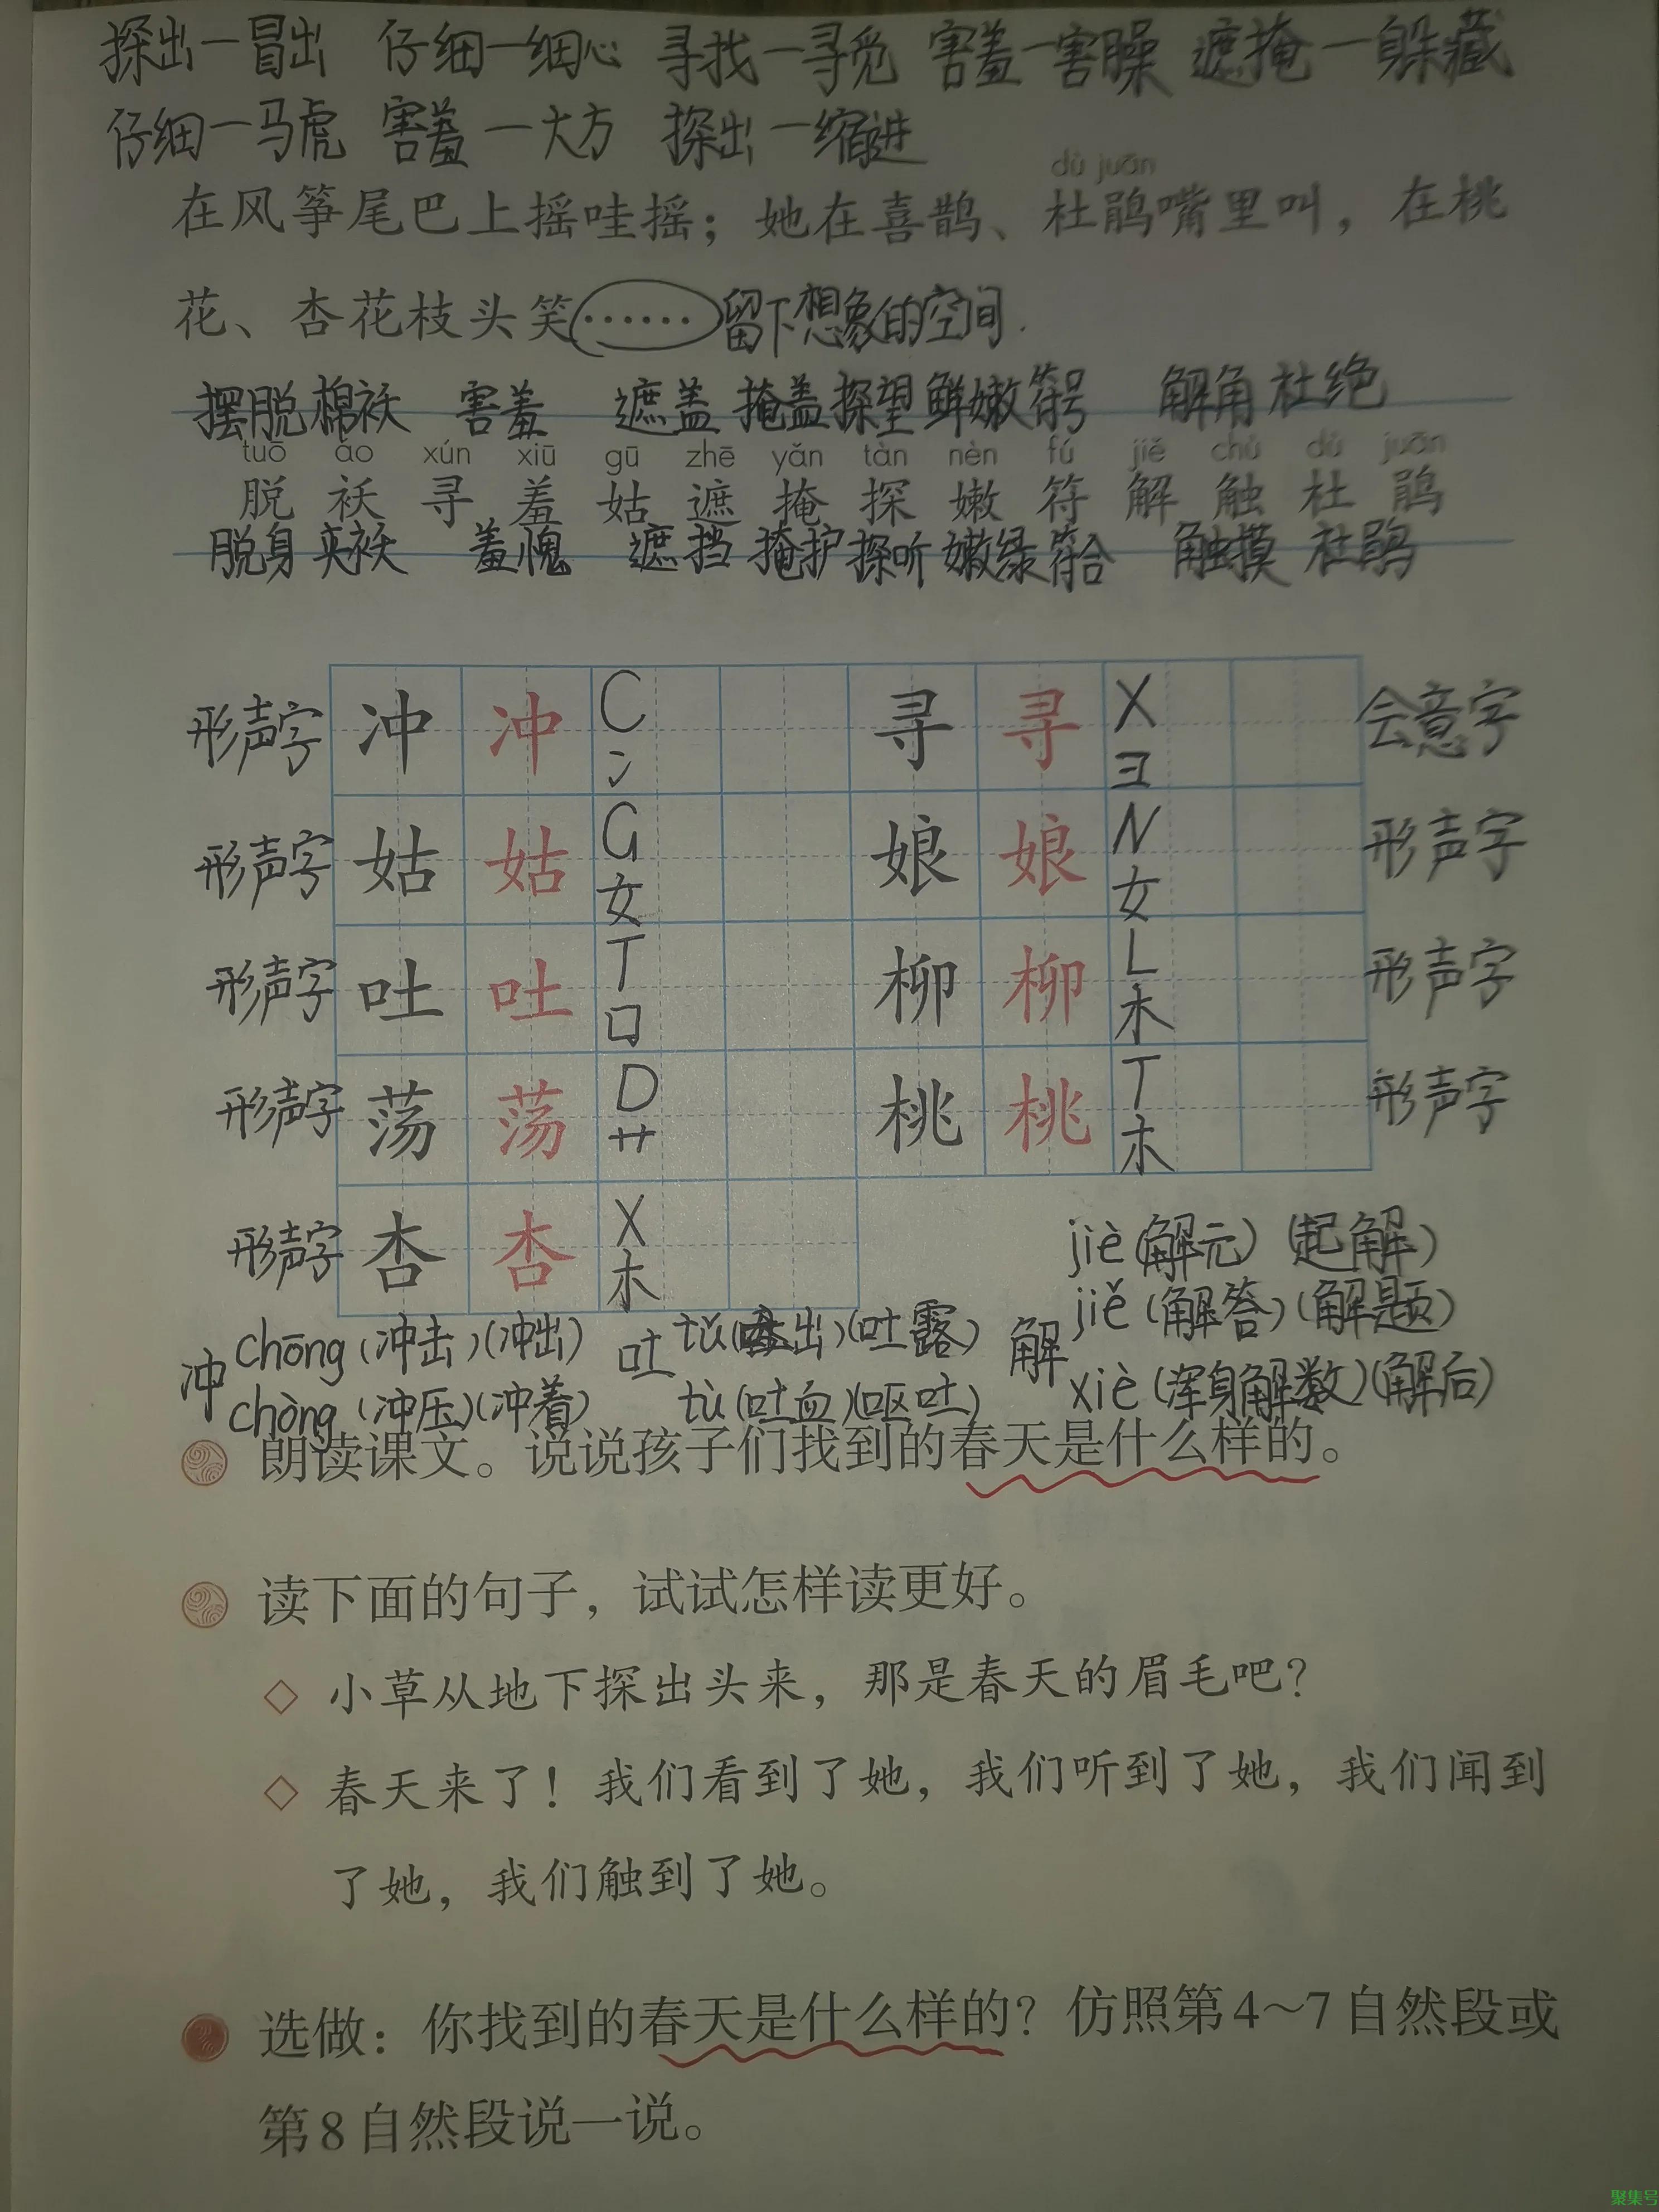 探出一冒出 仔细一细心 寻找一寻觅 害羞一害臊 遮掩一躲藏
仔细一马虎 害羞一大方 探出一缩进
dù juān
在风筝尾巴上摇哇摇；她在喜鹊、杜鹃嘴里叫，在桃
花、杏花枝头笑…… 留下想象的空间.
摆脱 棉袄 害羞 遮盖 掩盖 探望 鲜嫩 符号 解角 杜绝
tuō ǎo xún xiū gū zhē yǎn tàn nèn fú jiě chù dù juān
脱 袄 寻 羞 姑 遮 掩 探 嫩 符 解 触 杜 鹃
脱身 夹袄 羞愧 遮挡 掩护 探听 嫩绿 符合 触摸 杜鹃
形声字 冲 冲 C 冫 寻 寻 X 彐 会意字
形声字 姑 姑 G 女 娘 娘 N 女 形声字
形声字 吐 吐 T 口 柳 柳 L 木 形声字
形声字 荡 荡 D 艹 桃 桃 T 木 形声字
形声字 杏 杏 X 木
冲 chōng (冲击)(冲出)
chòng (冲压)(冲着)
吐 tǔ (吐出)(吐露)
tù (吐血)(呕吐)
解 jiè (解元) (起解)
jiě (解答)(解题)
xiè (浑身解数)(解后)
朗读课文。说说孩子们找到的春天是什么样的。
读下面的句子，试试怎样读更好。
◇ 小草从地下探出头来，那是春天的眉毛吧？
◇ 春天来了！我们看到了她，我们听到了她，我们闻到
了她，我们触到了她。
选做：你找到的春天是什么样的？仿照第4～7自然段或
第8自然段说一说。
聚集号